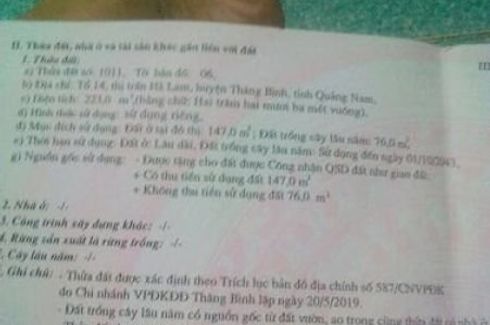 II. Thửa đất, nhà ở và tài sản khác gắn liền với đất
1. Thửa đất:
a) Thửa đất số: 1011, Tờ bản đồ: 06,
b) Địa chỉ: Tổ 14, thị trấn Hà Lam, huyện Thăng Bình, tỉnh Quảng Nam,
c) Diện tích: 223,0 m², (bằng chữ: Hai trăm hai mươi ba mét vuông),
d) Hình thức sử dụng: sử dụng riêng,
đ) Mục đích sử dụng: Đất ở tại đô thị: 147,0 m²; Đất trồng cây lâu năm: 76,0 m²,
e) Thời hạn sử dụng: Đất ở: Lâu dài, Đất trồng cây lâu năm: Sử dụng đến ngày 01/10/2043,
g) Nguồn gốc sử dụng: - Được tặng cho đất được Công nhận QSD đất như giao đất
+ Có thu tiền sử dụng đất 147,0 m²
+ Không thu tiền sử dụng đất 76,0 m²
2. Nhà ở: -/-
3. Công trình xây dựng khác: -/-
4. Rừng sản xuất là rừng trồng: -/-
. Cây lâu năm: -/-
. Ghi chú: - Thửa đất được xác định theo Trích lục bản đồ địa chính số 587/CNVPĐK
do Chi nhánh VPĐKĐĐ Thăng Bình lập ngày 20/5/2019.
- Đất trồng cây lâu năm có nguồn gốc từ đất vườn, ao trong cùng thửa đất có nhà ở
III